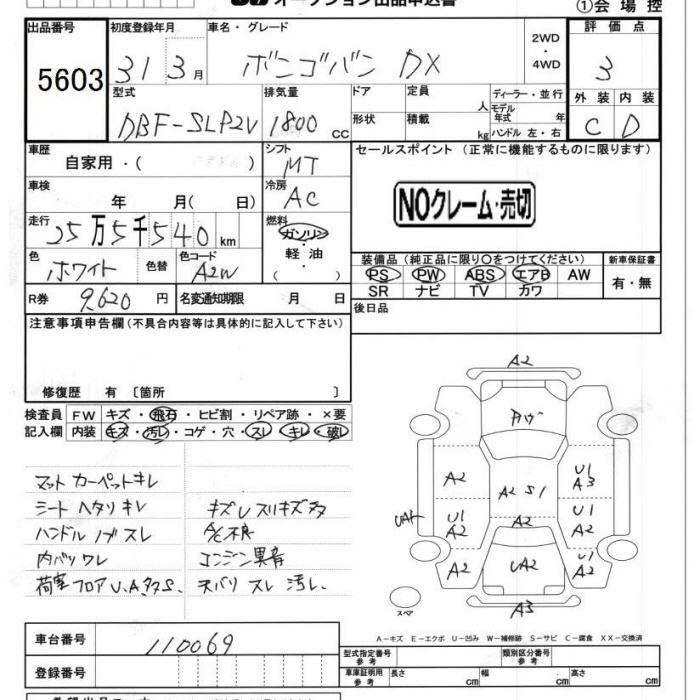 ①会 場 控
出品番号
5603
初度登録年月
31 3 月
車名・グレード
ボンゴバン DX
2WD
・
4WD
評 価 点
3
外 装 内 装
C D
型式
DBF-SLP2V
排気量
1800 cc
ドア
形状
定員 人
積載 kg
ディーラー・並行
モデル
年式 年
ハンドル 左・右
車歴
自家用・( )
シフト
MT
セールスポイント (正常に機能するものに限ります)
車検
年 月( 日)
冷房
AC
NOクレーム・売切
走行
25万5千540 km
燃料
ガソリン
・
軽 油
・
( )
色
ホワイト
色替
色コード
A2W
装備品 (純正品に限り〇をつけてください)
PS PW ABS エアB AW
SR ナビ TV カワ
新車保証書
有・無
R券 9,620 円
名変通知期限 月 日
後日品
注意事項申告欄(不具合内容等は具体的に記入して下さい)
修復歴 有 〔箇所 〕
検査員
記入欄
FW キズ・飛石・ヒビ割・リペア跡・×要
内装 キズ・汚レ・コゲ・穴・スレ・キレ・破レ
マット カーペットキレ
シート ヘタリ キレ
キズ U スリキズ多
ハンドル ノブ スレ
A/C不良
内バリ ワレ
エンジン異音
荷室 フロア U.A.タタS.
天バリ スレ 汚レ.
A2
A2
U1
A3
A2 S1
U1
A2
A2
U1
A2
A2
UA2
U1
A2
A3
スペア
A-キズ E-エクボ U-凹み W-補修跡 S-サビ C-腐食 XX-交換済
車台番号 110069
登録番号
型式指定番号
参 考
類別区分番号
参 考
車庫証明用
参 考
長さ cm
幅 cm
高さ cm